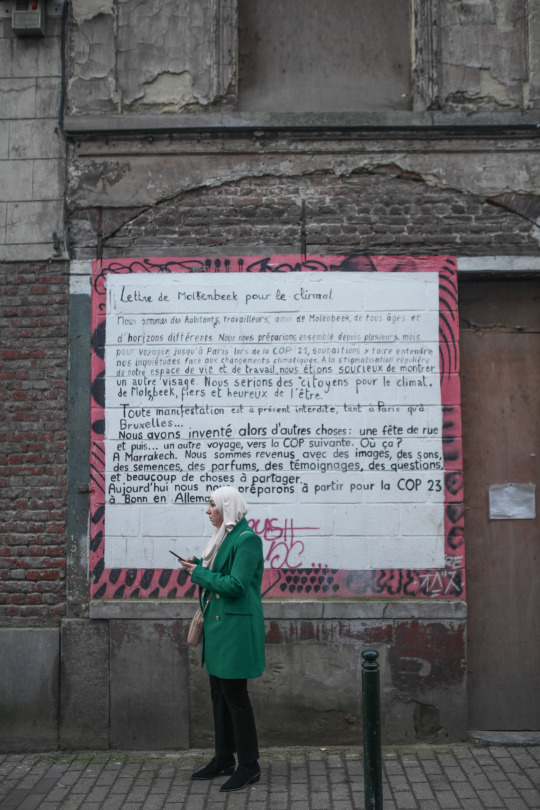 Lettre de Molenbeek pour le climat
Nous sommes des habitants, travailleurs, amis de Molenbeek, de tous âges et
d'horizons différents. Nous nous préparions ensemble depuis plusieurs mois
pour voyager jusqu'à Paris lors de la COP 21, souhaitions faire entendre
nos inquiétudes face aux changements climatiques. A la stigmatisation régulière
de notre espace de vit et de travail, nous étions soucieux de montrer
un autre visage. Nous serions des "citoyens pour le climat,
de Molenbeek, fiers et heureux de l'être.
Toute manifestation est à présent interdite, tant à Paris qu'à
Bruxelles...
Nous avons inventé alors d'autres choses: une fête de rue
et puis... un autre voyage, vers la COP suivante. Où ça?
A Marrakech. Nous sommes revenus, avec des images, des sons,
des semences, des parfums, des témoignages, des questions,
et beaucoup de choses à partager.
Aujourd'hui nous nous préparons à partir pour la COP 23
à Bonn en Allema